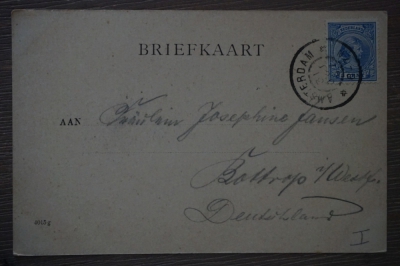 BRIEFKAART
AMSTERDAM
AAN Fräulein Josephine Jansen
Bottrop i/Westf.
Deutschland
I